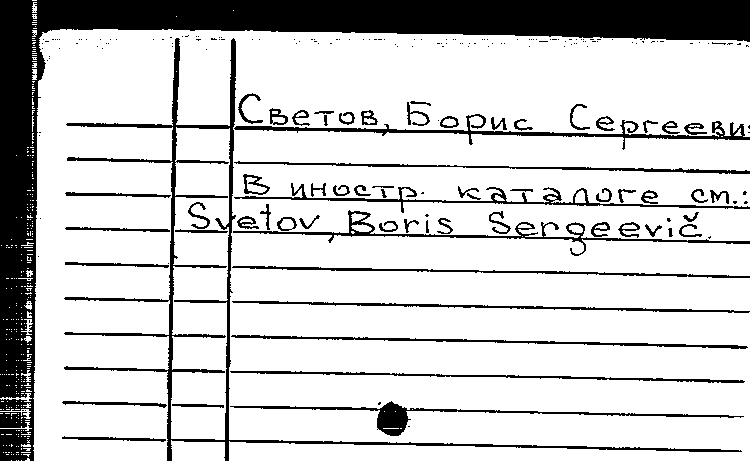 Светов, Борис Сергеевич
В иностр. каталоге см.:
Svetov, Boris Sergeevič.